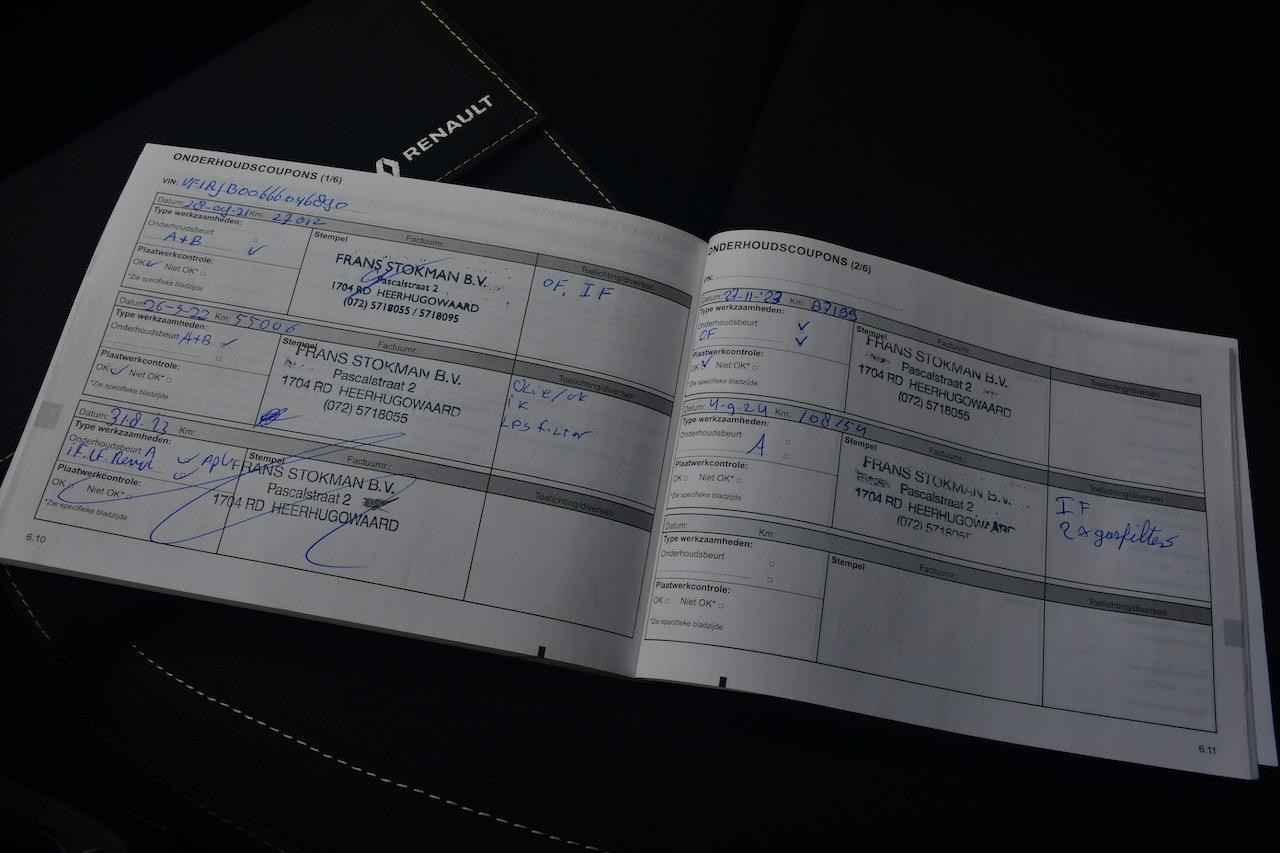 RENAULT
ONDERHOUDSCOUPONS (1/6)
VIN:
Datum: 28-09-21 Km:
Type werkzaamheden:
Onderhoudsbeurt
A+B
Plaatwerkcontrole:
OK Niet OK*
*Zie specifieke bladzijde
Stempel Factuurnr.:
FRANS STOKMAN B.V.
Pascalstraat 2
1704 RD HEERHUGOWAARD
(072) 5718055 / 5718095
Toelichting/diversen
OF, IF
Datum: 26-5-22 Km: 55006
Type werkzaamheden:
Onderhoudsbeurt A+B
Plaatwerkcontrole:
OK Niet OK*
*Zie specifieke bladzijde
Stempel Factuurnr.:
FRANS STOKMAN B.V.
Pascalstraat 2
1704 RD HEERHUGOWAARD
(072) 5718055
Toelichting/diversen
filter
Datum: 31-8-23 Km:
Type werkzaamheden:
Onderhoudsbeurt A
Plaatwerkcontrole:
OK Niet OK*
*Zie specifieke bladzijde
Stempel Factuurnr.:
FRANS STOKMAN B.V.
Pascalstraat 2
1704 RD HEERHUGOWAARD
Toelichting/diversen
6.10
ONDERHOUDSCOUPONS (2/6)
VIN:
Datum: 27-11-23 Km:
Type werkzaamheden:
Onderhoudsbeurt
OF
Plaatwerkcontrole:
OK Niet OK*
*Zie specifieke bladzijde
Stempel Factuurnr.:
FRANS STOKMAN B.V.
Pascalstraat 2
1704 RD HEERHUGOWAARD
(072) 5718055
Toelichting/diversen
Datum: 4-9-24 Km: 108154
Type werkzaamheden:
Onderhoudsbeurt
A
Plaatwerkcontrole:
OK Niet OK*
*Zie specifieke bladzijde
Stempel Factuurnr.:
FRANS STOKMAN B.V.
Pascalstraat 2
1704 RD HEERHUGOWAARD
Toelichting/diversen
IF
2x gasfilters
Datum: Km:
Type werkzaamheden:
Onderhoudsbeurt
Plaatwerkcontrole:
OK Niet OK*
*Zie specifieke bladzijde
Stempel Factuurnr.:
Toelichting/diversen
6.11